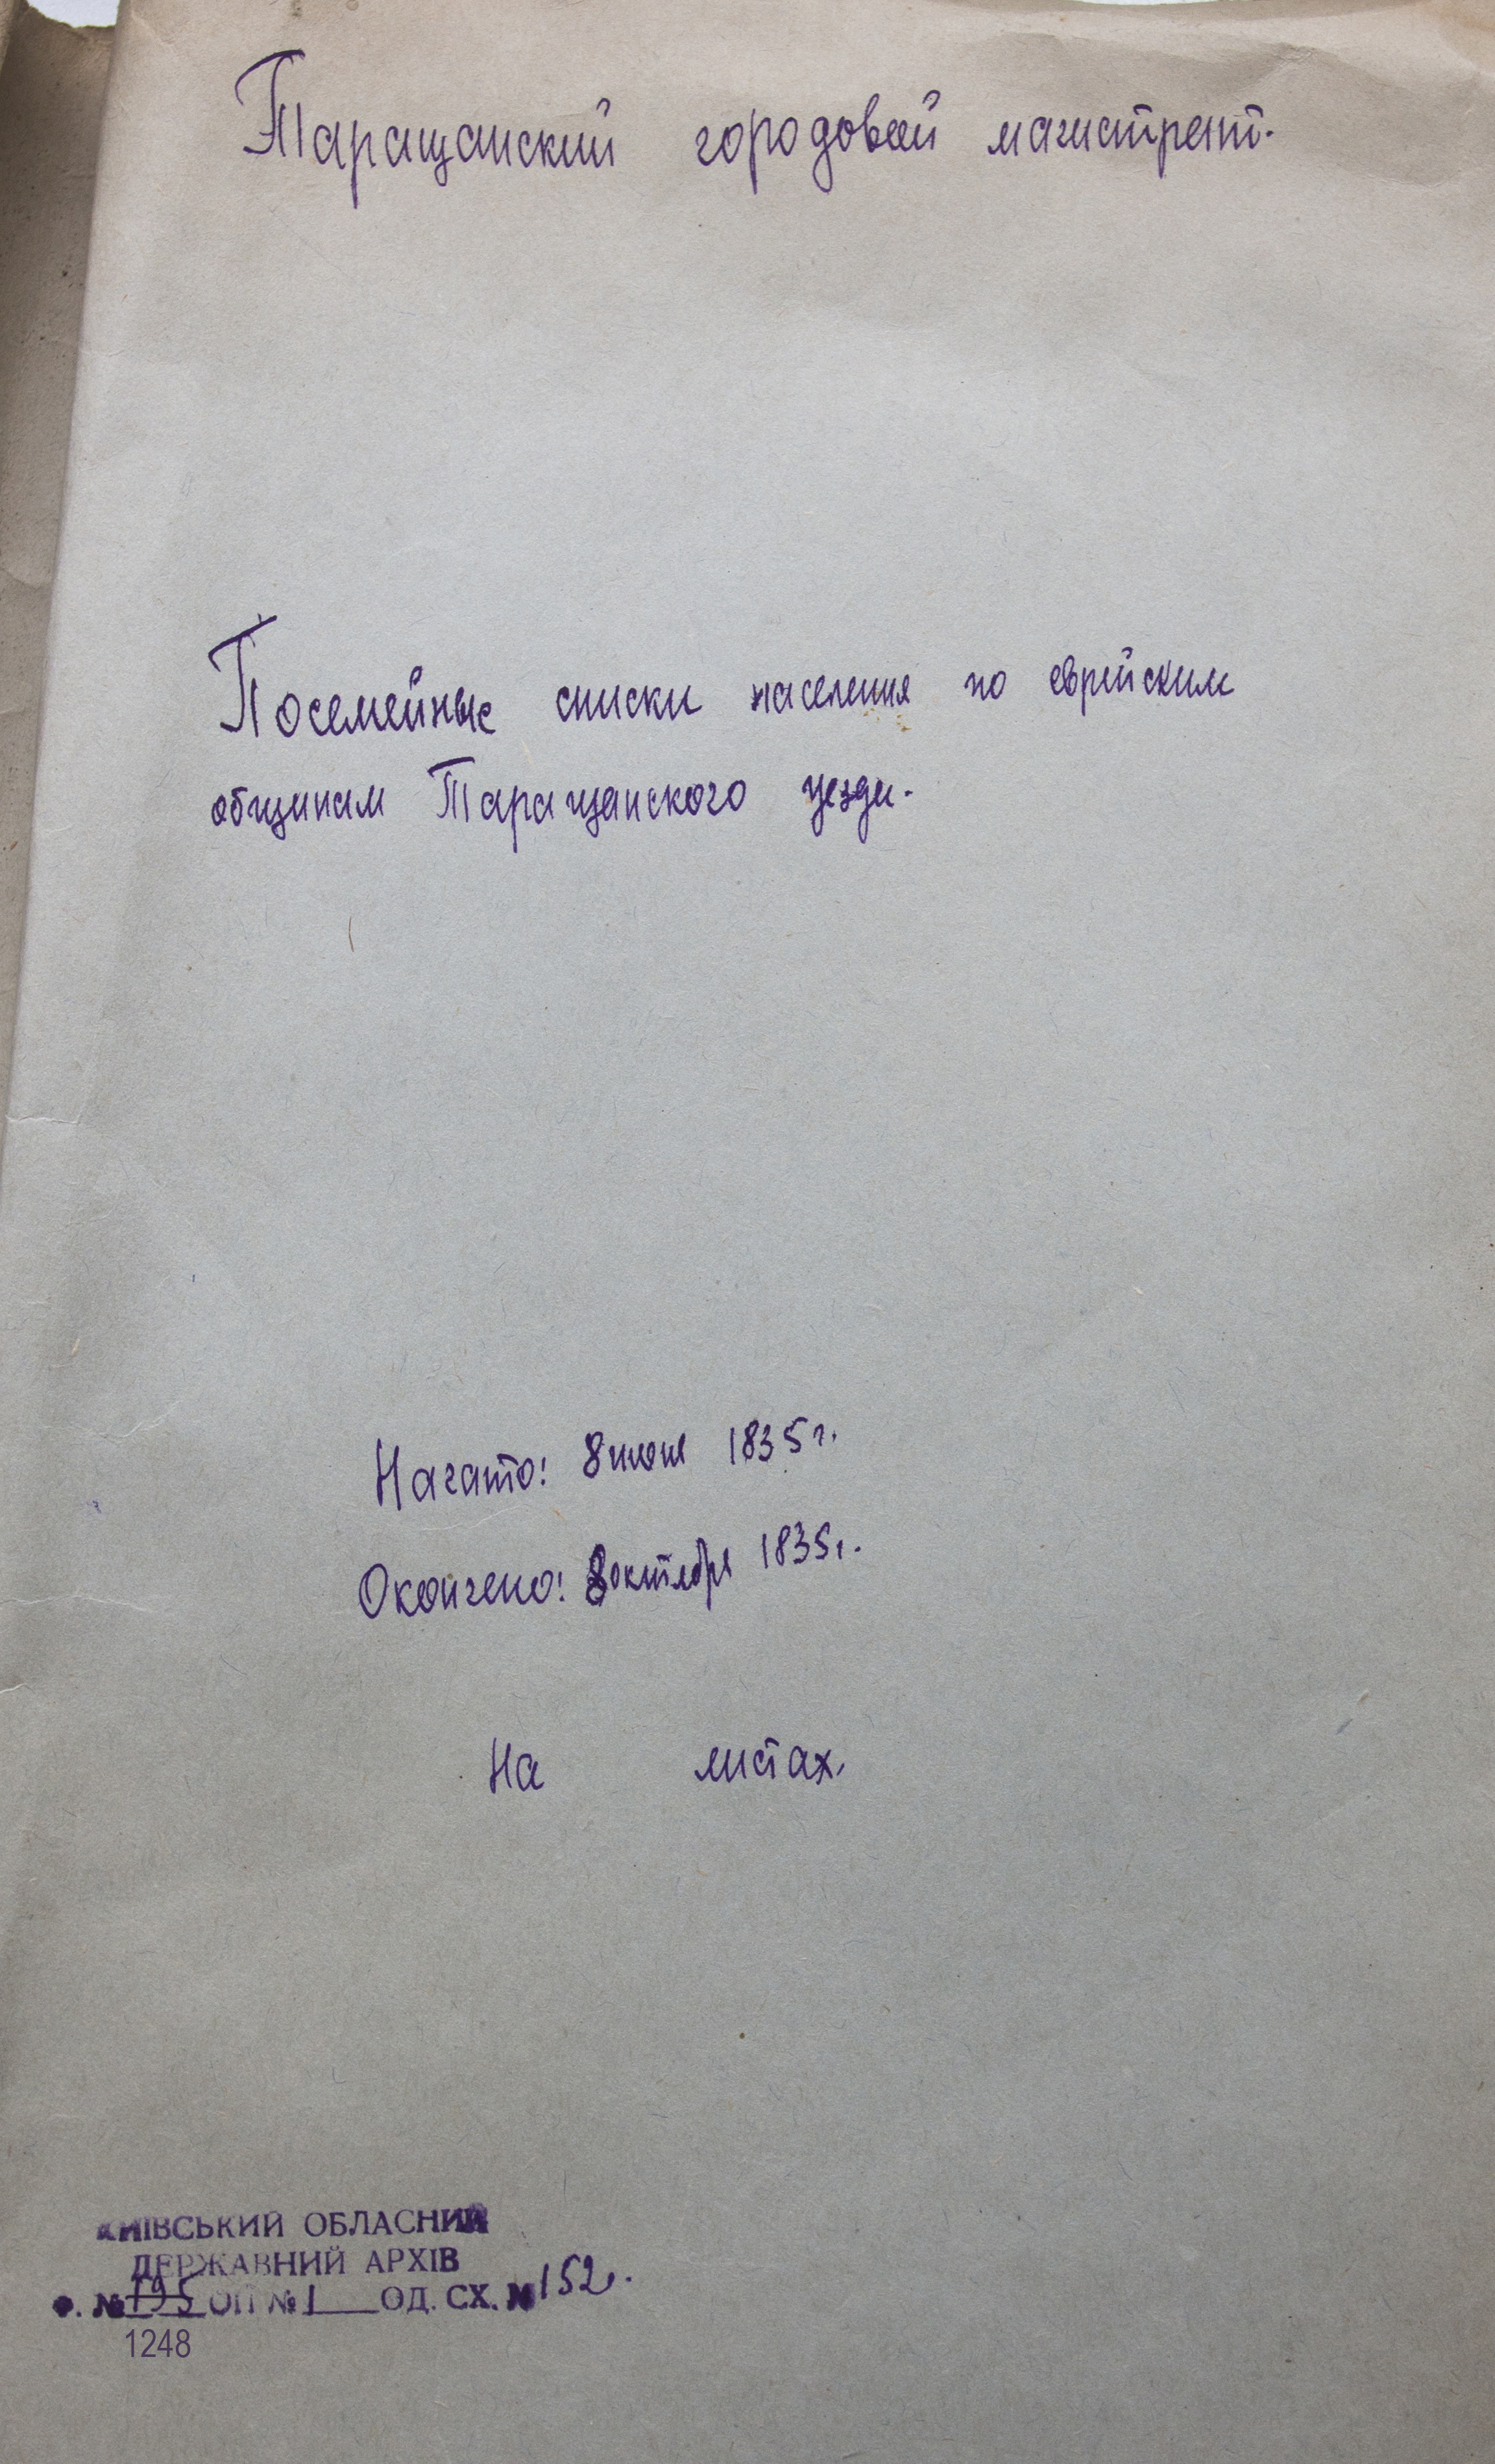 Таращанский городовой магистрат.
Посемейные списки населения по еврейским
общинам Таращанского уезда.
Начато: 8 июня 1835 г.
Окончено: 8 октября 1835 г.
На листах.
КИЇВСЬКИЙ ОБЛАСНИЙ
ДЕРЖАВНИЙ АРХІВ
Ф. № 195 ОП № 1 ОД. СХ. № 152.
1248